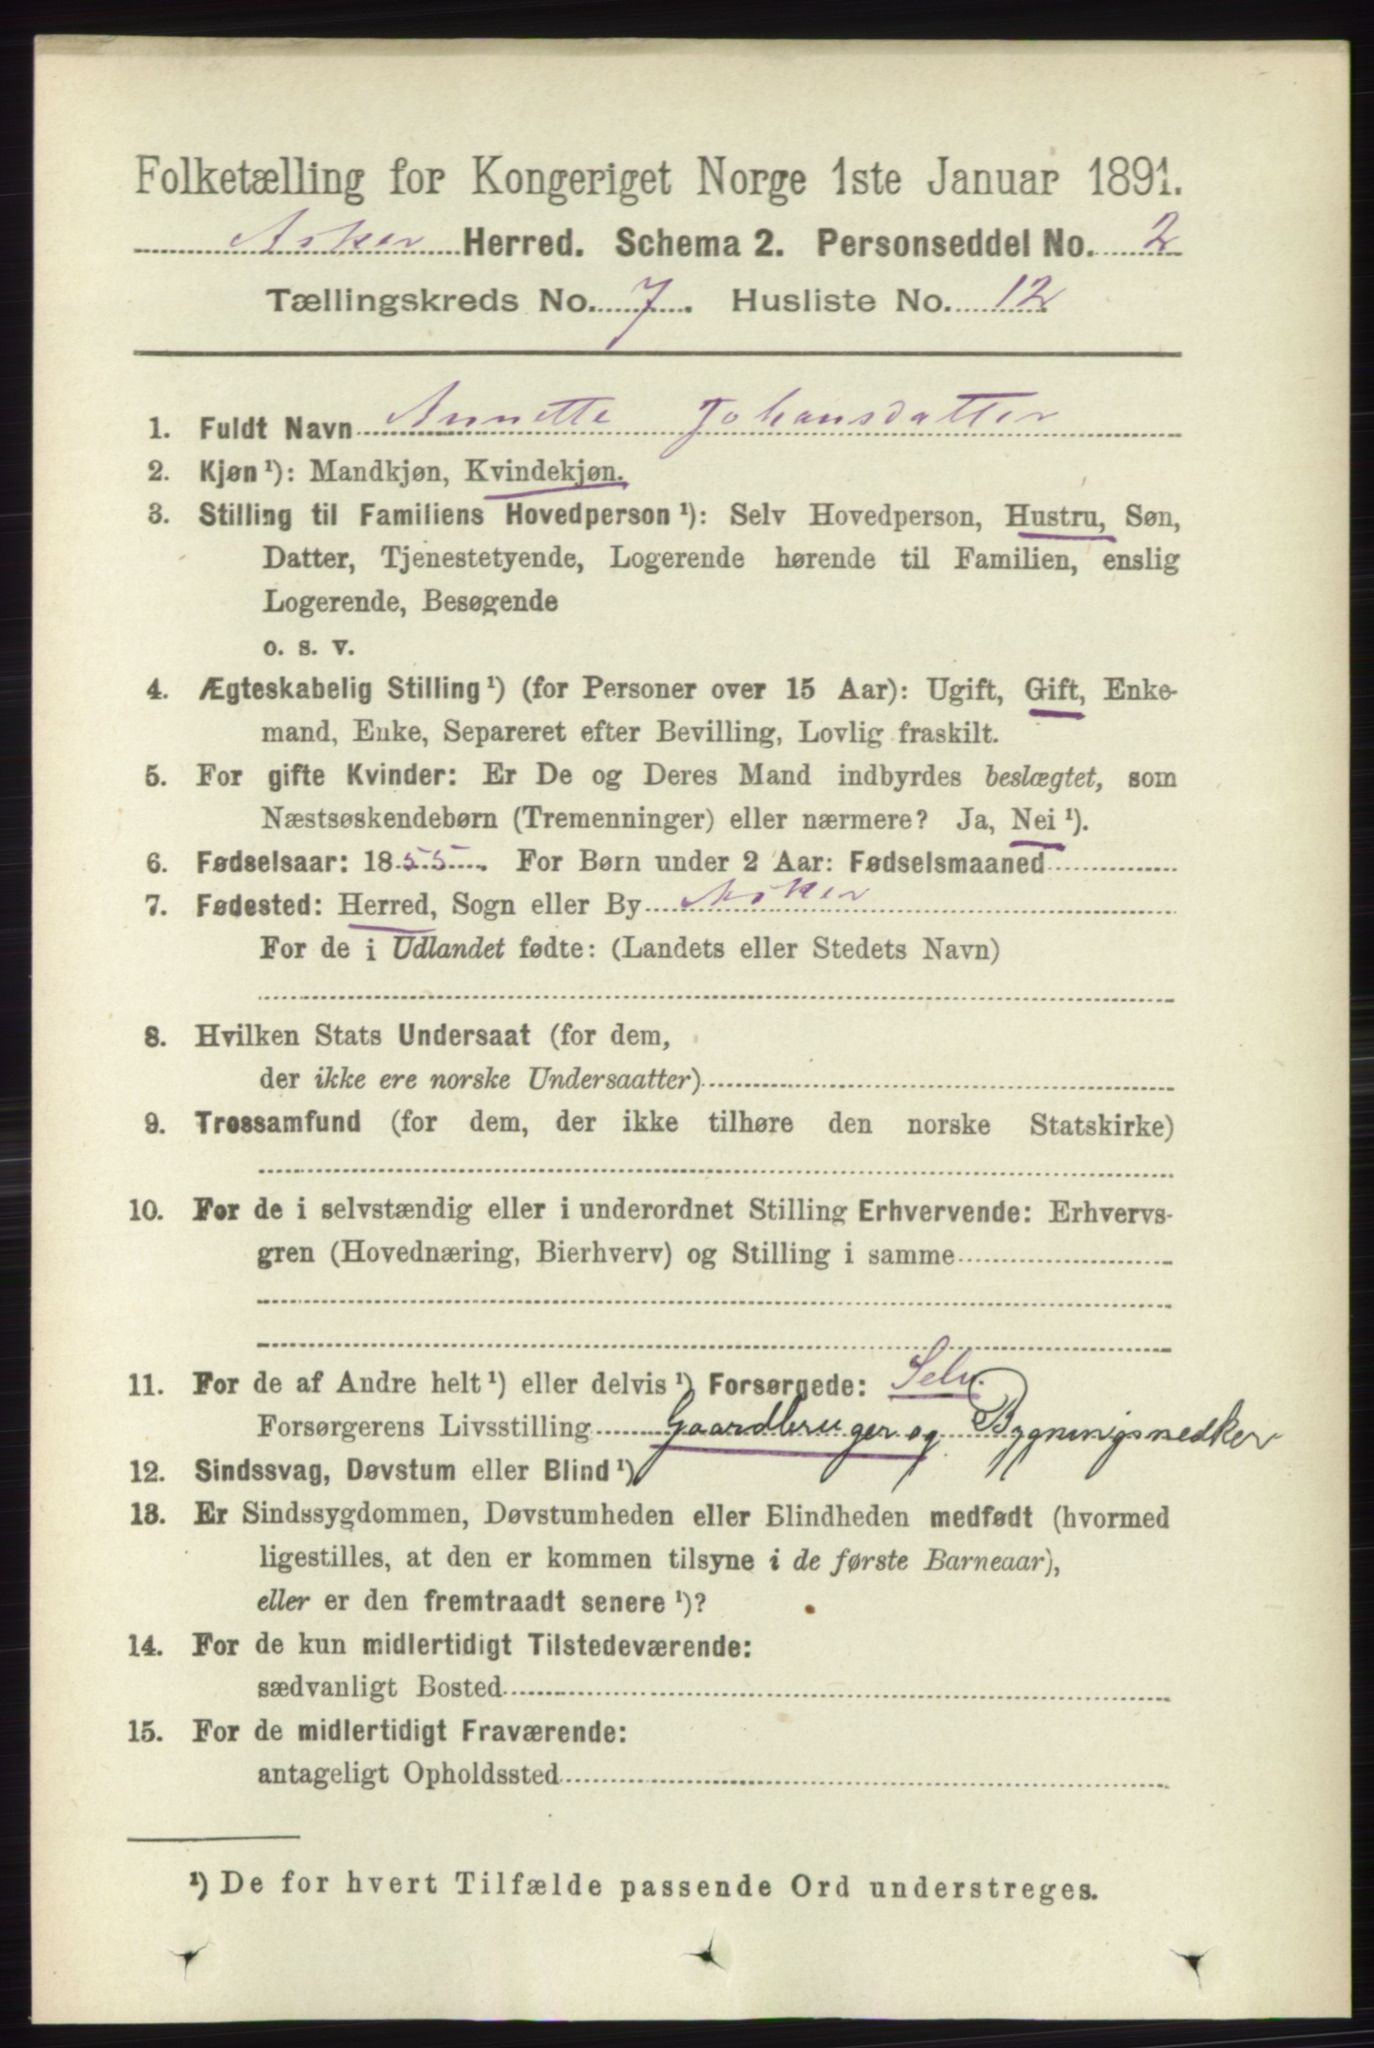 Folketælling for Kongeriget Norge 1ste Januar 1891.
Asker Herred. Schema 2. Personseddel No. 2
Tællingskreds No. 7. Husliste No. 12
1. Fuldt Navn Annette Johansdatter
2. Kjøn ¹): Mandkjøn, Kvindekjøn.
3. Stilling til Familiens Hovedperson ¹): Selv Hovedperson, Hustru, Søn,
Datter, Tjenestetyende, Logerende hørende til Familien, enslig
Logerende, Besøgende
o. s. v.
4. Ægteskabelig Stilling ¹) (for Personer over 15 Aar): Ugift, Gift, Enke-
mand, Enke, Separeret efter Bevilling, Lovlig fraskilt.
5. For gifte Kvinder: Er De og Deres Mand indbyrdes beslægtet, som
Næstsøskendebørn (Tremenninger) eller nærmere? Ja, Nei ¹).
6. Fødselsaar: 1855. For Børn under 2 Aar: Fødselsmaaned
7. Fødested: Herred, Sogn eller By Asker
For de i Udlandet fødte: (Landets eller Stedets Navn)
8. Hvilken Stats Undersaat (for dem,
der ikke ere norske Undersaatter)
9. Trossamfund (for dem, der ikke tilhøre den norske Statskirke)
10. For de i selvstændig eller i underordnet Stilling Erhvervende: Erhvervs-
gren (Hovednæring, Bierhverv) og Stilling i samme
11. For de af Andre helt ¹) eller delvis ¹) Forsørgede: Selv.
Forsørgerens Livsstilling Gaardbruger og Bygningsnedker
12. Sindssvag, Døvstum eller Blind ¹)
13. Er Sindssygdommen, Døvstumheden eller Blindheden medfødt (hvormed
ligestilles, at den er kommen tilsyne i de første Barneaar),
eller er den fremtraadt senere ¹)?
14. For de kun midlertidigt Tilstedeværende:
sædvanligt Bosted
15. For de midlertidigt Fraværende:
antageligt Opholdssted
¹) De for hvert Tilfælde passende Ord understreges.